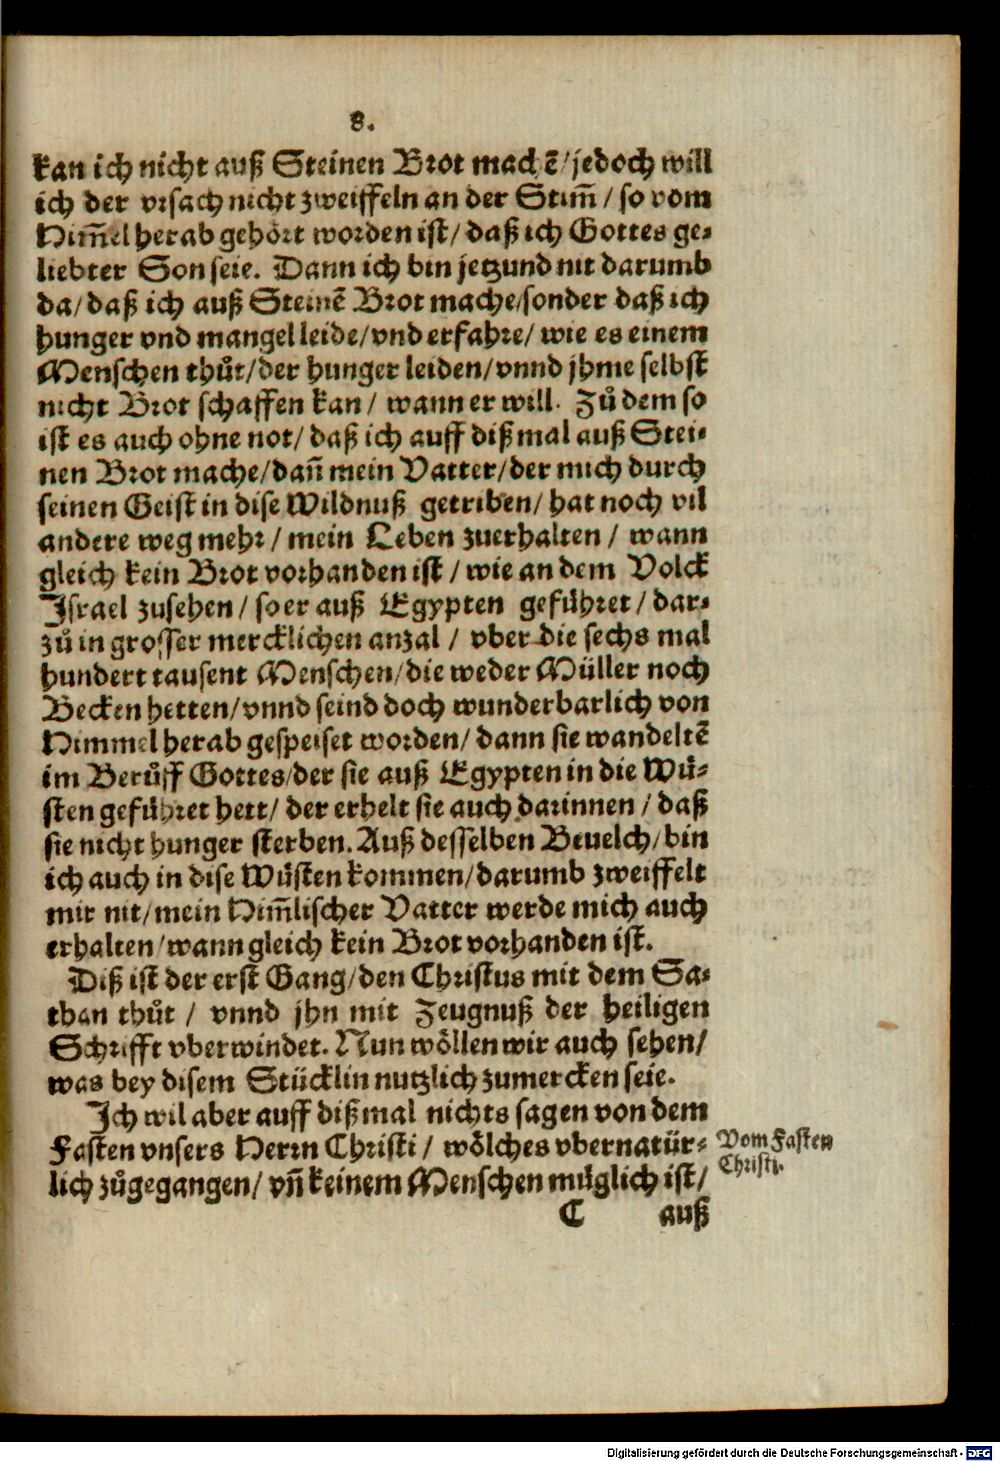 8.
kan ich nicht auß Steinen Brot machē/jedoch will
ich der vrsach nicht zweiffeln an der Stim̄ / so vom
Him̄el herab gehört worden ist/ daß ich Gottes ge-
liebter Son seie. Dann ich bin jetzund nit darumb
da/ daß ich auß Steinē Brot mache/sonder daß ich
hunger vnd mangel leide/vnd erfahre/ wie es einem
Menschen thůt/der hunger leiden/vnnd jhme selbst
nicht Brot schaffen kan / wann er will. Zů dem so
ist es auch ohne not/ daß ich auff diß mal auß Stei-
nen Brot mache/dañ mein Vatter/der mich durch
seinen Geist in dise Wildnuß getriben/ hat noch vil
andere weg mehr / mein Leben zuerhalten / wann
gleich kein Brot vorhanden ist / wie an dem Volck
Israel zusehen / so er auß Egypten geführet / dar-
zů in grosser mercklichen anzal / vber die sechs mal
hundert tausent Menschen/die weder Müller noch
Becken hetten/vnnd seind doch wunderbarlich von
Himmel herab gespeiset worden/ dann sie wandeltē
im Berůff Gottes/der sie auß Egypten in die Wü-
sten geführet hett/ der erhelt sie auch darinnen / daß
sie nicht hunger sterben. Auß desselben Beuelch/bin
ich auch in dise Wüsten kommen/darumb zweiffelt
mir nit/mein Him̄lischer Vatter werde mich auch
erhalten/wann gleich kein Brot vorhanden ist.
Diß ist der erst Gang/den Christus mit dem Sa-
than thůt / vnnd jhn mit Zeugnuß der heiligen
Schrifft vberwindet. Nun wöllen wir auch sehen/
was bey disem Stücklin nutzlich zumercken seie.
Ich wil aber auff diß mal nichts sagen von dem
Fasten vnsers Herrn Christi / wölches vbernatür-
lich zůgegangen/ vñ keinem Menschen müglich ist/
Vom Fasten
Christi.
C auß
Digitalisierung gefördert durch die Deutsche Forschungsgemeinschaft - DFG